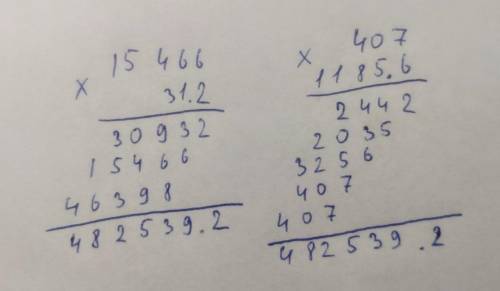 15 466
x 31.2
30932
15466
46398
482539.2
407
x 1185.6
2442
2035
3256
407
407
482539.2